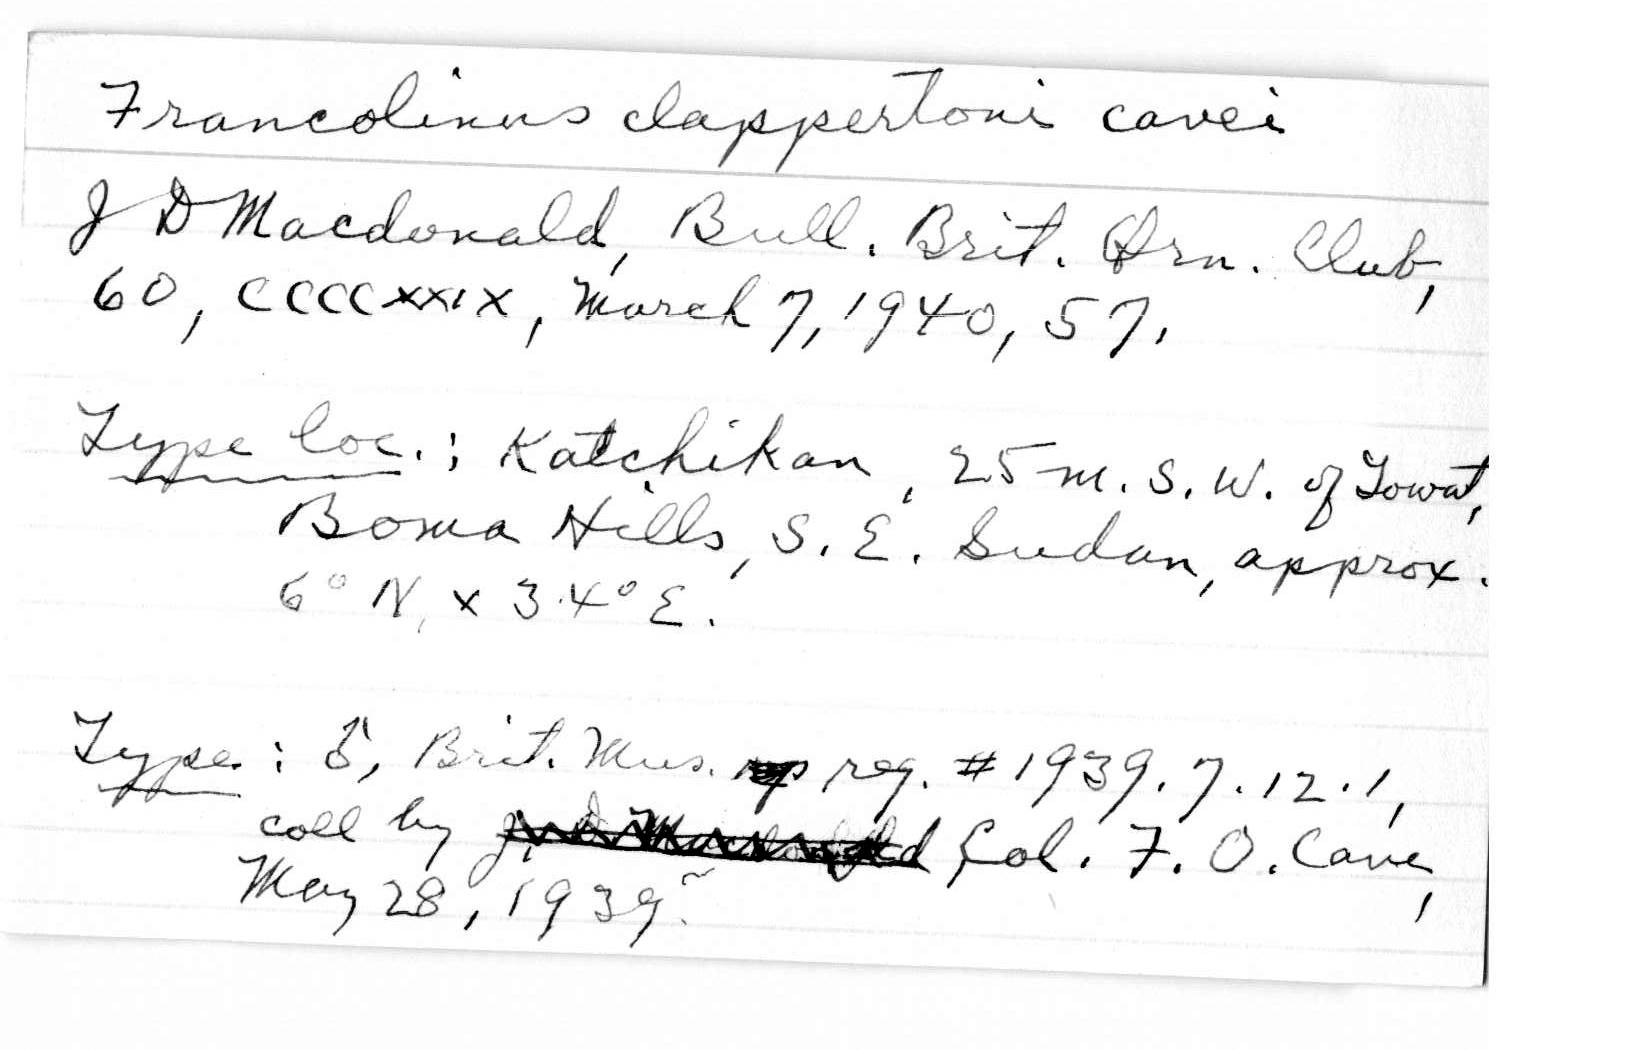 Francolinus clappertoni cavei
J D Macdonald, Bull. Brit. Orn. Club,
60, CCCCXXIX, March 7, 1940, 57.
Type loc.: Katchikan, 25 m. S.W. of Towat,
Boma Hills, S.E. Sudan, approx.
6° N. x 34° E.
Type: ♂, Brit. Mus. reg. # 1939.7.12.1,
coll by J. D. Macdonald Col. F. O. Cave,
May 28, 1939.